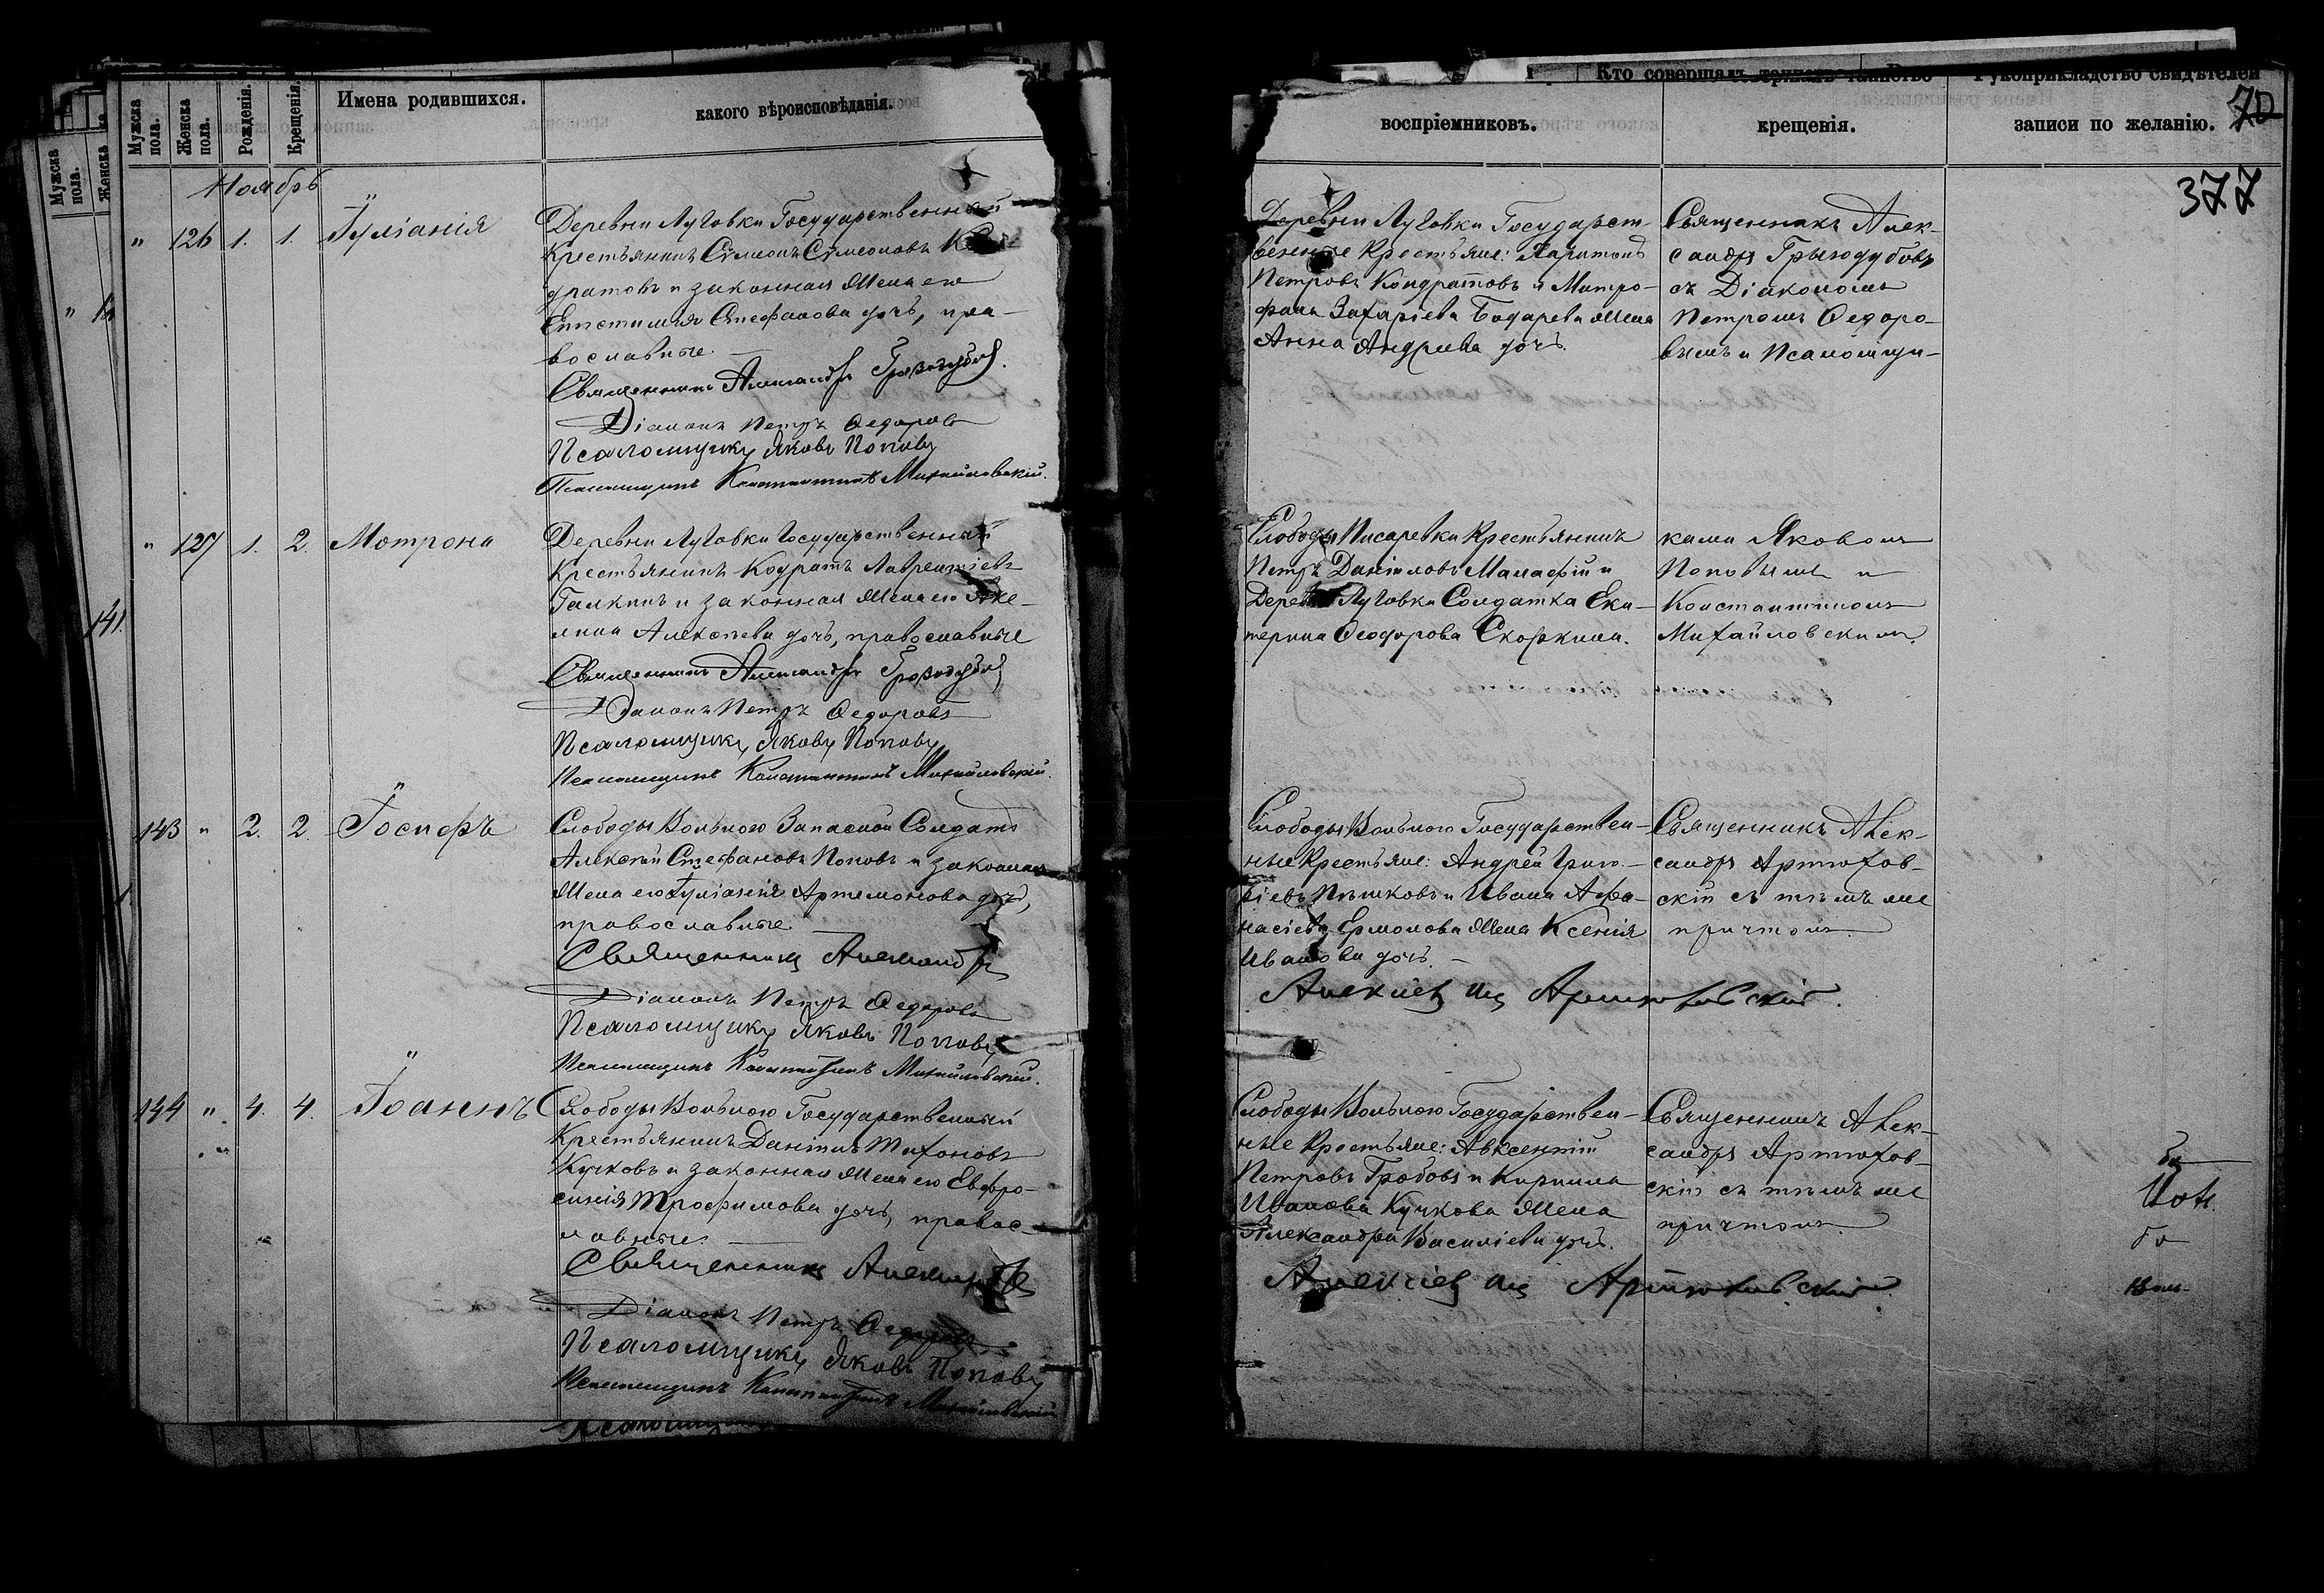 Мужска пола.
Женска
Мужска пола.
Женска пола.
Рожденія.
Крещенія.
Имена родившихся.
какого вѣроисповѣданія.
Ноябрь
" 126 1. 1. Іуліанія
Деревни Луговки Государственный
Крестьянинъ Сѵмеонъ Сѵмеоновъ
дратовъ и законная жена его
Епистимія Стефанова дочь, пра-
вославные.
Священникъ Александръ Грызодубовъ.
Діаконъ Петръ Ѳедоровъ
Псаломщикъ Яковъ Поповъ
Псаломщикъ Константинъ Михайловскій.
" 127 1. 2. Мотрона
Деревни Луговки Государственный
Крестьянинъ Кодратъ Лаврентіевъ
Галкинъ и законная жена его Аке-
лина Алексѣева дочь, православные
Священникъ Александръ Грызодубовъ
Діаконъ Петръ Ѳедоровъ
Псаломщикъ Яковъ Поповъ
Псаломщикъ Константинъ Михайловскій.
141
143 " 2. 2. Іосифъ
Слободы Вольного Запасной Солдатъ
Алексѣй Стефановъ Поповъ и законная
жена его Іуліанія Артемонова дочь,
православные.
Священникъ Александръ
Діаконъ Петръ Ѳедоровъ
Псаломщикъ Яковъ Поповъ
Псаломщикъ Константинъ Михайловскій.
144 " 4. 4. Іоаннъ
Слободы Вольного Государственный
Крестьянинъ Даніилъ Тихоновъ
Кучковъ и законная жена его Евфро-
синія Трофимова дочь, правос-
лавные.
Священникъ Александръ
Діаконъ Петръ Ѳедоровъ
Псаломщикъ Яковъ Поповъ
Псаломщикъ Константинъ Михайловскій
воспріемниковъ.
Кто совершалъ таинство
крещенія.
Рукоприкладство свидѣтелей
записи по желанію.
70
377
Деревни Луговки Государст-
венные Крестьяне: Харитонъ
Петровъ Кондратовъ и Митро-
фана Захаріева Бодарева жена
Анна Андреева дочь.
Священникъ Алек-
сандръ Грызодубовъ
съ Діакономъ
Петромъ Ѳедоро-
вымъ и Псаломщи-
Слободы Писаревки Крестьянинъ
Петръ Даніиловъ Малафій и
Деревни Луговки Солдатка Ека-
терина Ѳеодорова Скофкина.
ками Яковомъ
Поповымъ и
Константиномъ
Михайловскимъ.
Слободы Вольного Государствен-
ные Крестьяне: Андрей Григо-
ріевъ Пѣшковъ и Ивана Афа-
насіева Ермолова жена Ксенія
Иванова дочь. -
Священникъ Алек-
сандръ Артюхов-
скій съ тѣмъ же
причтомъ.
Алексіевичъ Артюховскій.
Слободы Вольного Государствен-
ные Крестьяне: Авксентій
Петровъ Гробовъ и Кирилла
Иванова Кучкова жена
Александра Васильева дочь.
Священникъ Алек-
сандръ Артюхов-
скій съ тѣмъ же
причтомъ.
Алексіевичъ Артюховскій.